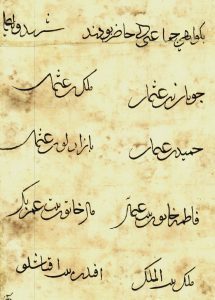 بگواهی جماعتی که حاضر بودند
جوبان بن عثمان ملک بن عثمان
حمید بن عثمان بازارلو بن عثمان
فاطمه خاتون بنت عثمان مال خاتون بنت عمر بک
ملک بنت الملک افندی بنت اقباشلو